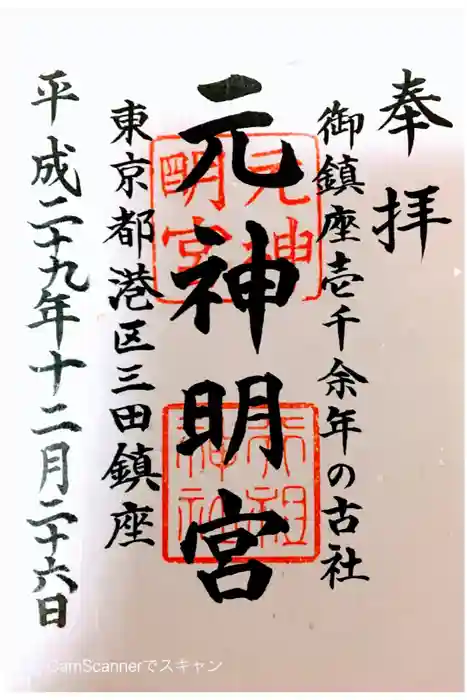 奉拝
御鎮座壱千余年の古社
元神明宮
元神明宮
東京都港区三田鎮座
平成二十九年十二月二十六日
CamScannerでスキャン